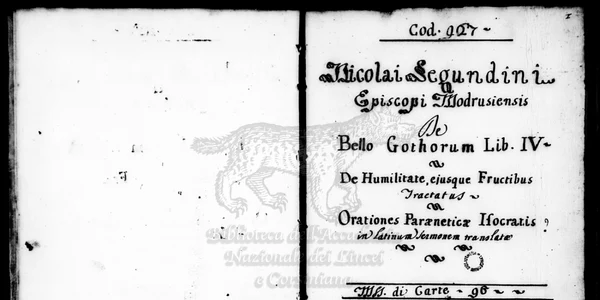 Cod. 927
Nicolai Segundini
Episcopi Modrusiensis
De
Bello Gothorum Lib. IV
De Humilitate, ejusque Fructibus
Tractatus
Orationes Paræneticæ Isocratis
in latinum sermonem translatæ
MS. di Carte 96
Biblioteca dell'Accademia
Nazionale dei Lincei
e Corsiniana